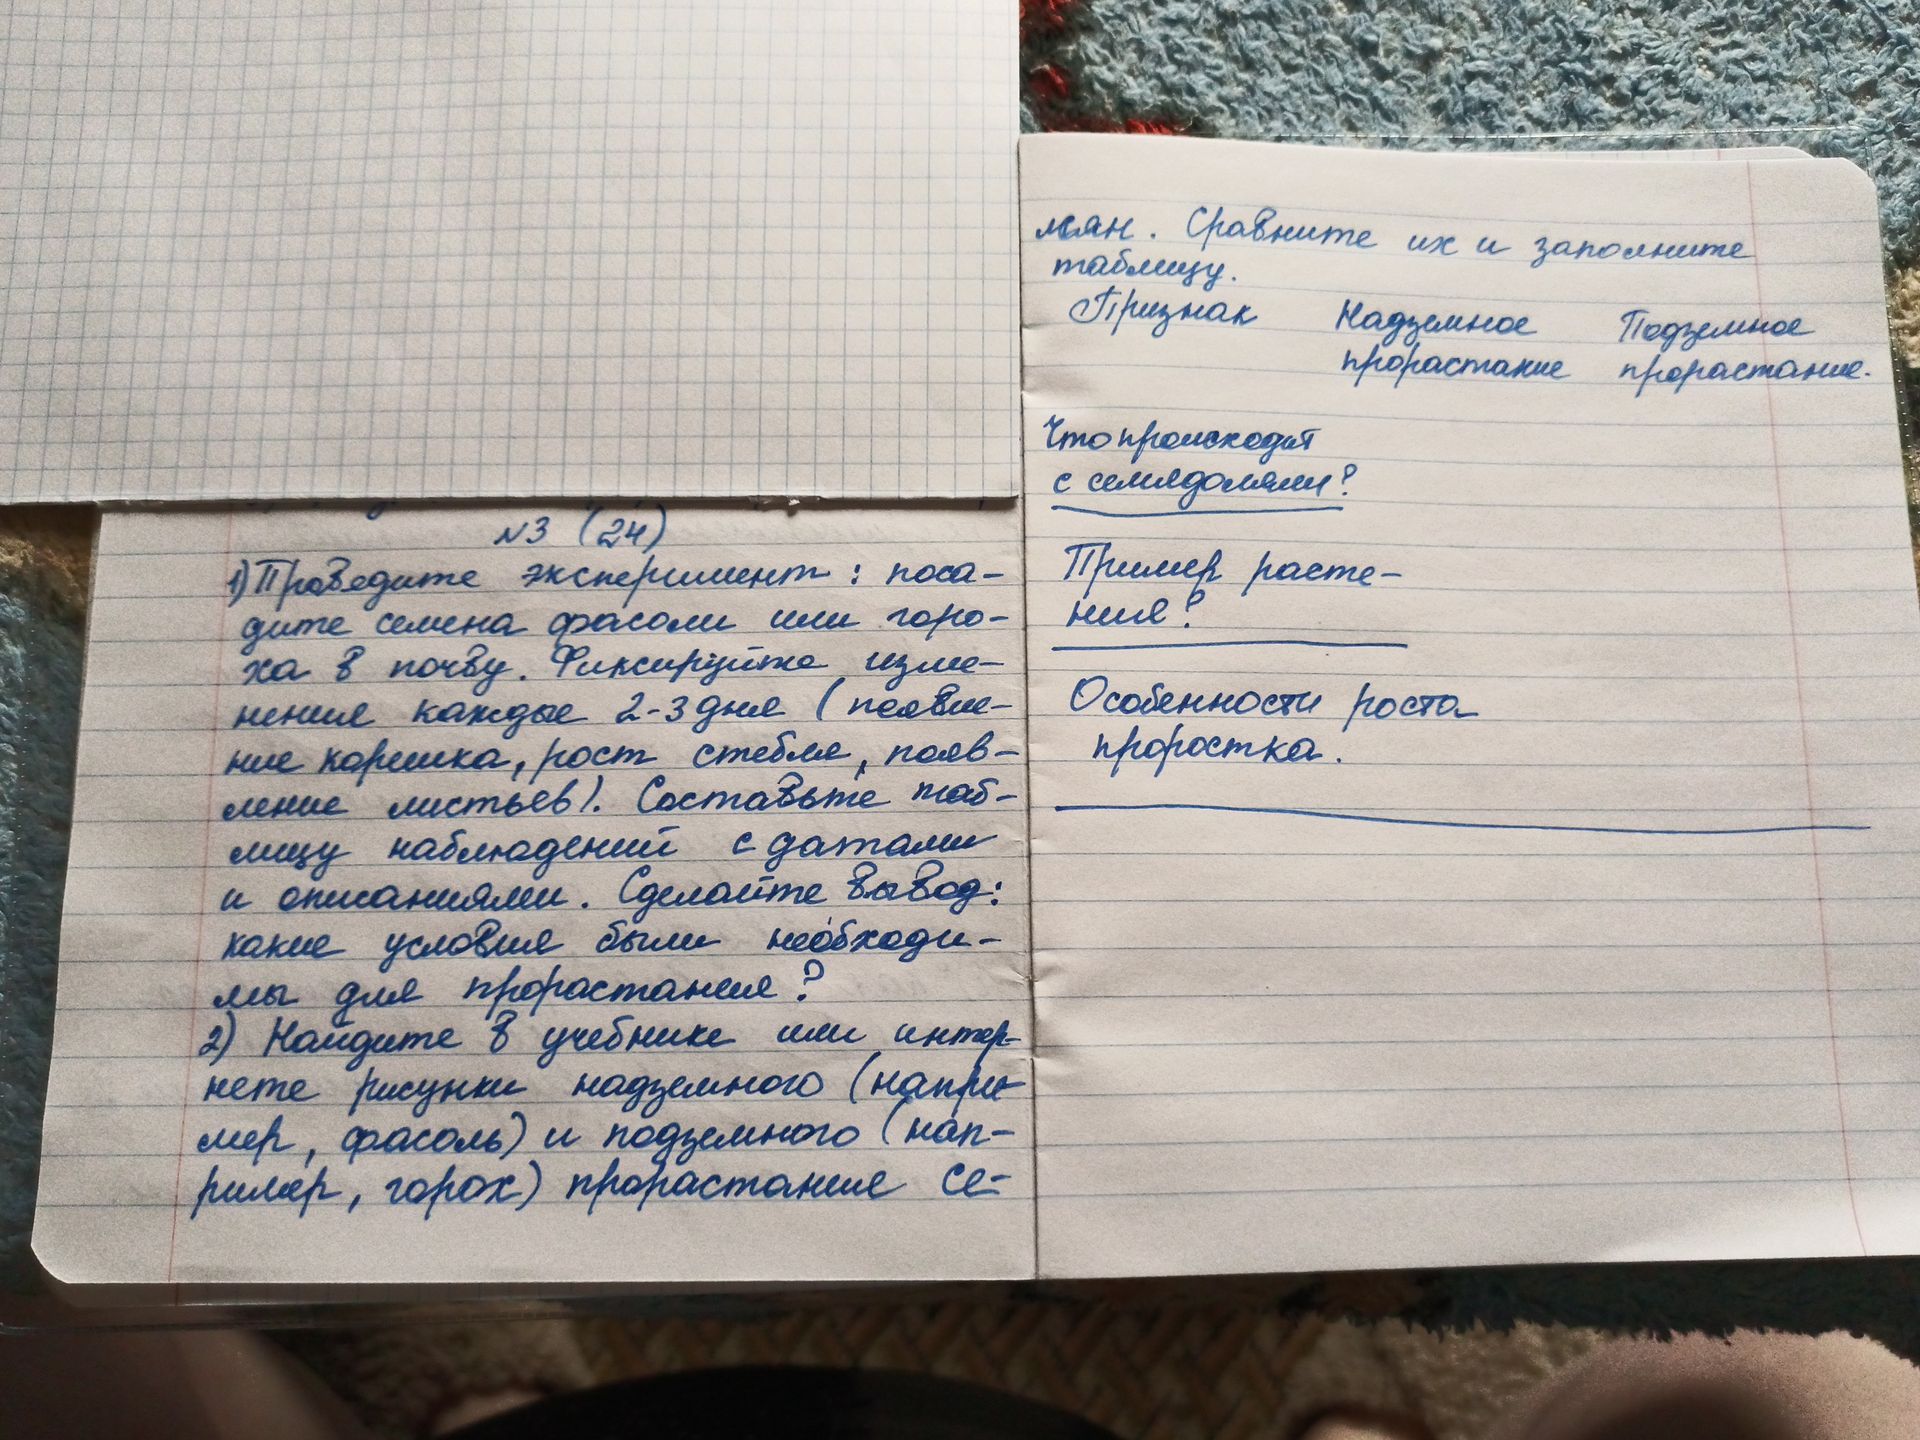 №3 (24)
1) Проведите эксперимент: поса-
дите семена фасоли или горо-
ха в почву. Фиксируйте изме-
нения каждые 2-3 дня (появле-
ние корешка, рост стебля, появ-
ление листьев). Составьте таб-
лицу наблюдений с датами
и описаниями. Сделайте вывод:
какие условия были необходи-
мы для прорастания?
2) Найдите в учебнике или интер-
нете рисунки надземного (напри-
мер, фасоль) и подземного (нап-
ример, горох) прорастание се-
мян. Сравните их и заполните
таблицу.
Признак Надземное Подземное
прорастание прорастание.
Что происходит
с семядолями?
Пример расте-
ния?
Особенности роста
проростка.